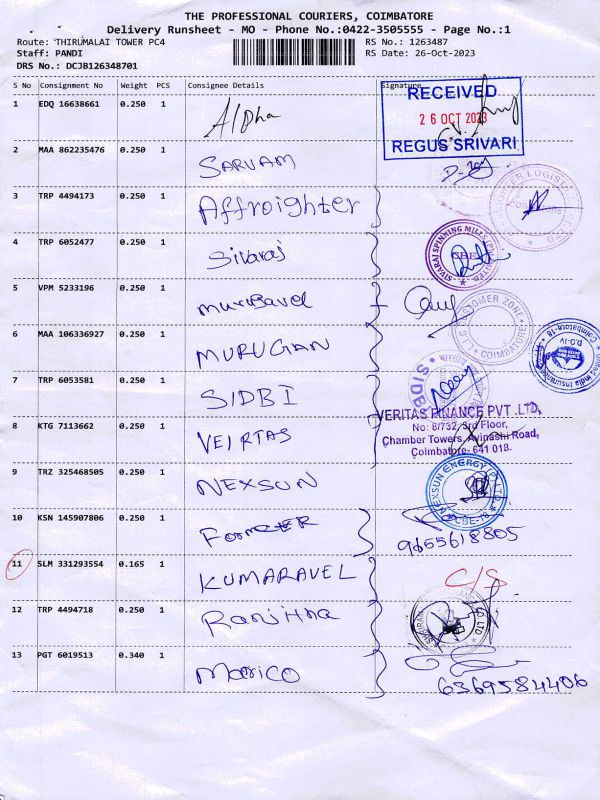 THE PROFESSIONAL COURIERS, COIMBATORE
Delivery Runsheet - MO - Phone No.:0422-3505555 - Page No.:1
Route: THIRUMALAI TOWER PC4 RS No.: 1263487
Staff: PANDI RS Date: 26-Oct-2023
DRS No.: DCJB126348701
S No Consignment No Weight PCS Consignee Details Signature
1 EDQ 16638661 0.250 1 Alpha
RECEIVED
26 OCT 2023
REGUS SRIVARI
2 MAA 862235476 0.250 1 SARVAM
3 TRP 4494173 0.250 1 Affroighter
4 TRP 6052477 0.250 1 Sivaraj
SIVARAJ SPINNING MILLS (P) LIMITED
CBE
5 VPM 5233196 0.250 1 Murugavel
L.I.C CUSTOMER ZONE
COIMBATORE
6 MAA 106336927 0.250 1 MURUGAN
United India Insurance
D.O-IV
Coimbatore-18
7 TRP 6053581 0.250 1 SIDBI
SIDBI
8 KTG 7113662 0.250 1 VEIRTAS
VERITAS FINANCE PVT .LTD,
No: 8/732, 3rd Floor,
Chamber Towers, Avinashi Road,
Coimbatore- 641 018.
9 TRZ 325468505 0.250 1 NEXSUN
NEXSUN ENERGY (P) LTD
CBE-18
10 KSN 145907806 0.250 1
9655618805
11 SLM 331293554 0.165 1 KUMARAVEL C/S
12 TRP 4494718 0.250 1 Ranjitha
13 PGT 6019513 0.340 1 Marico
6369584406